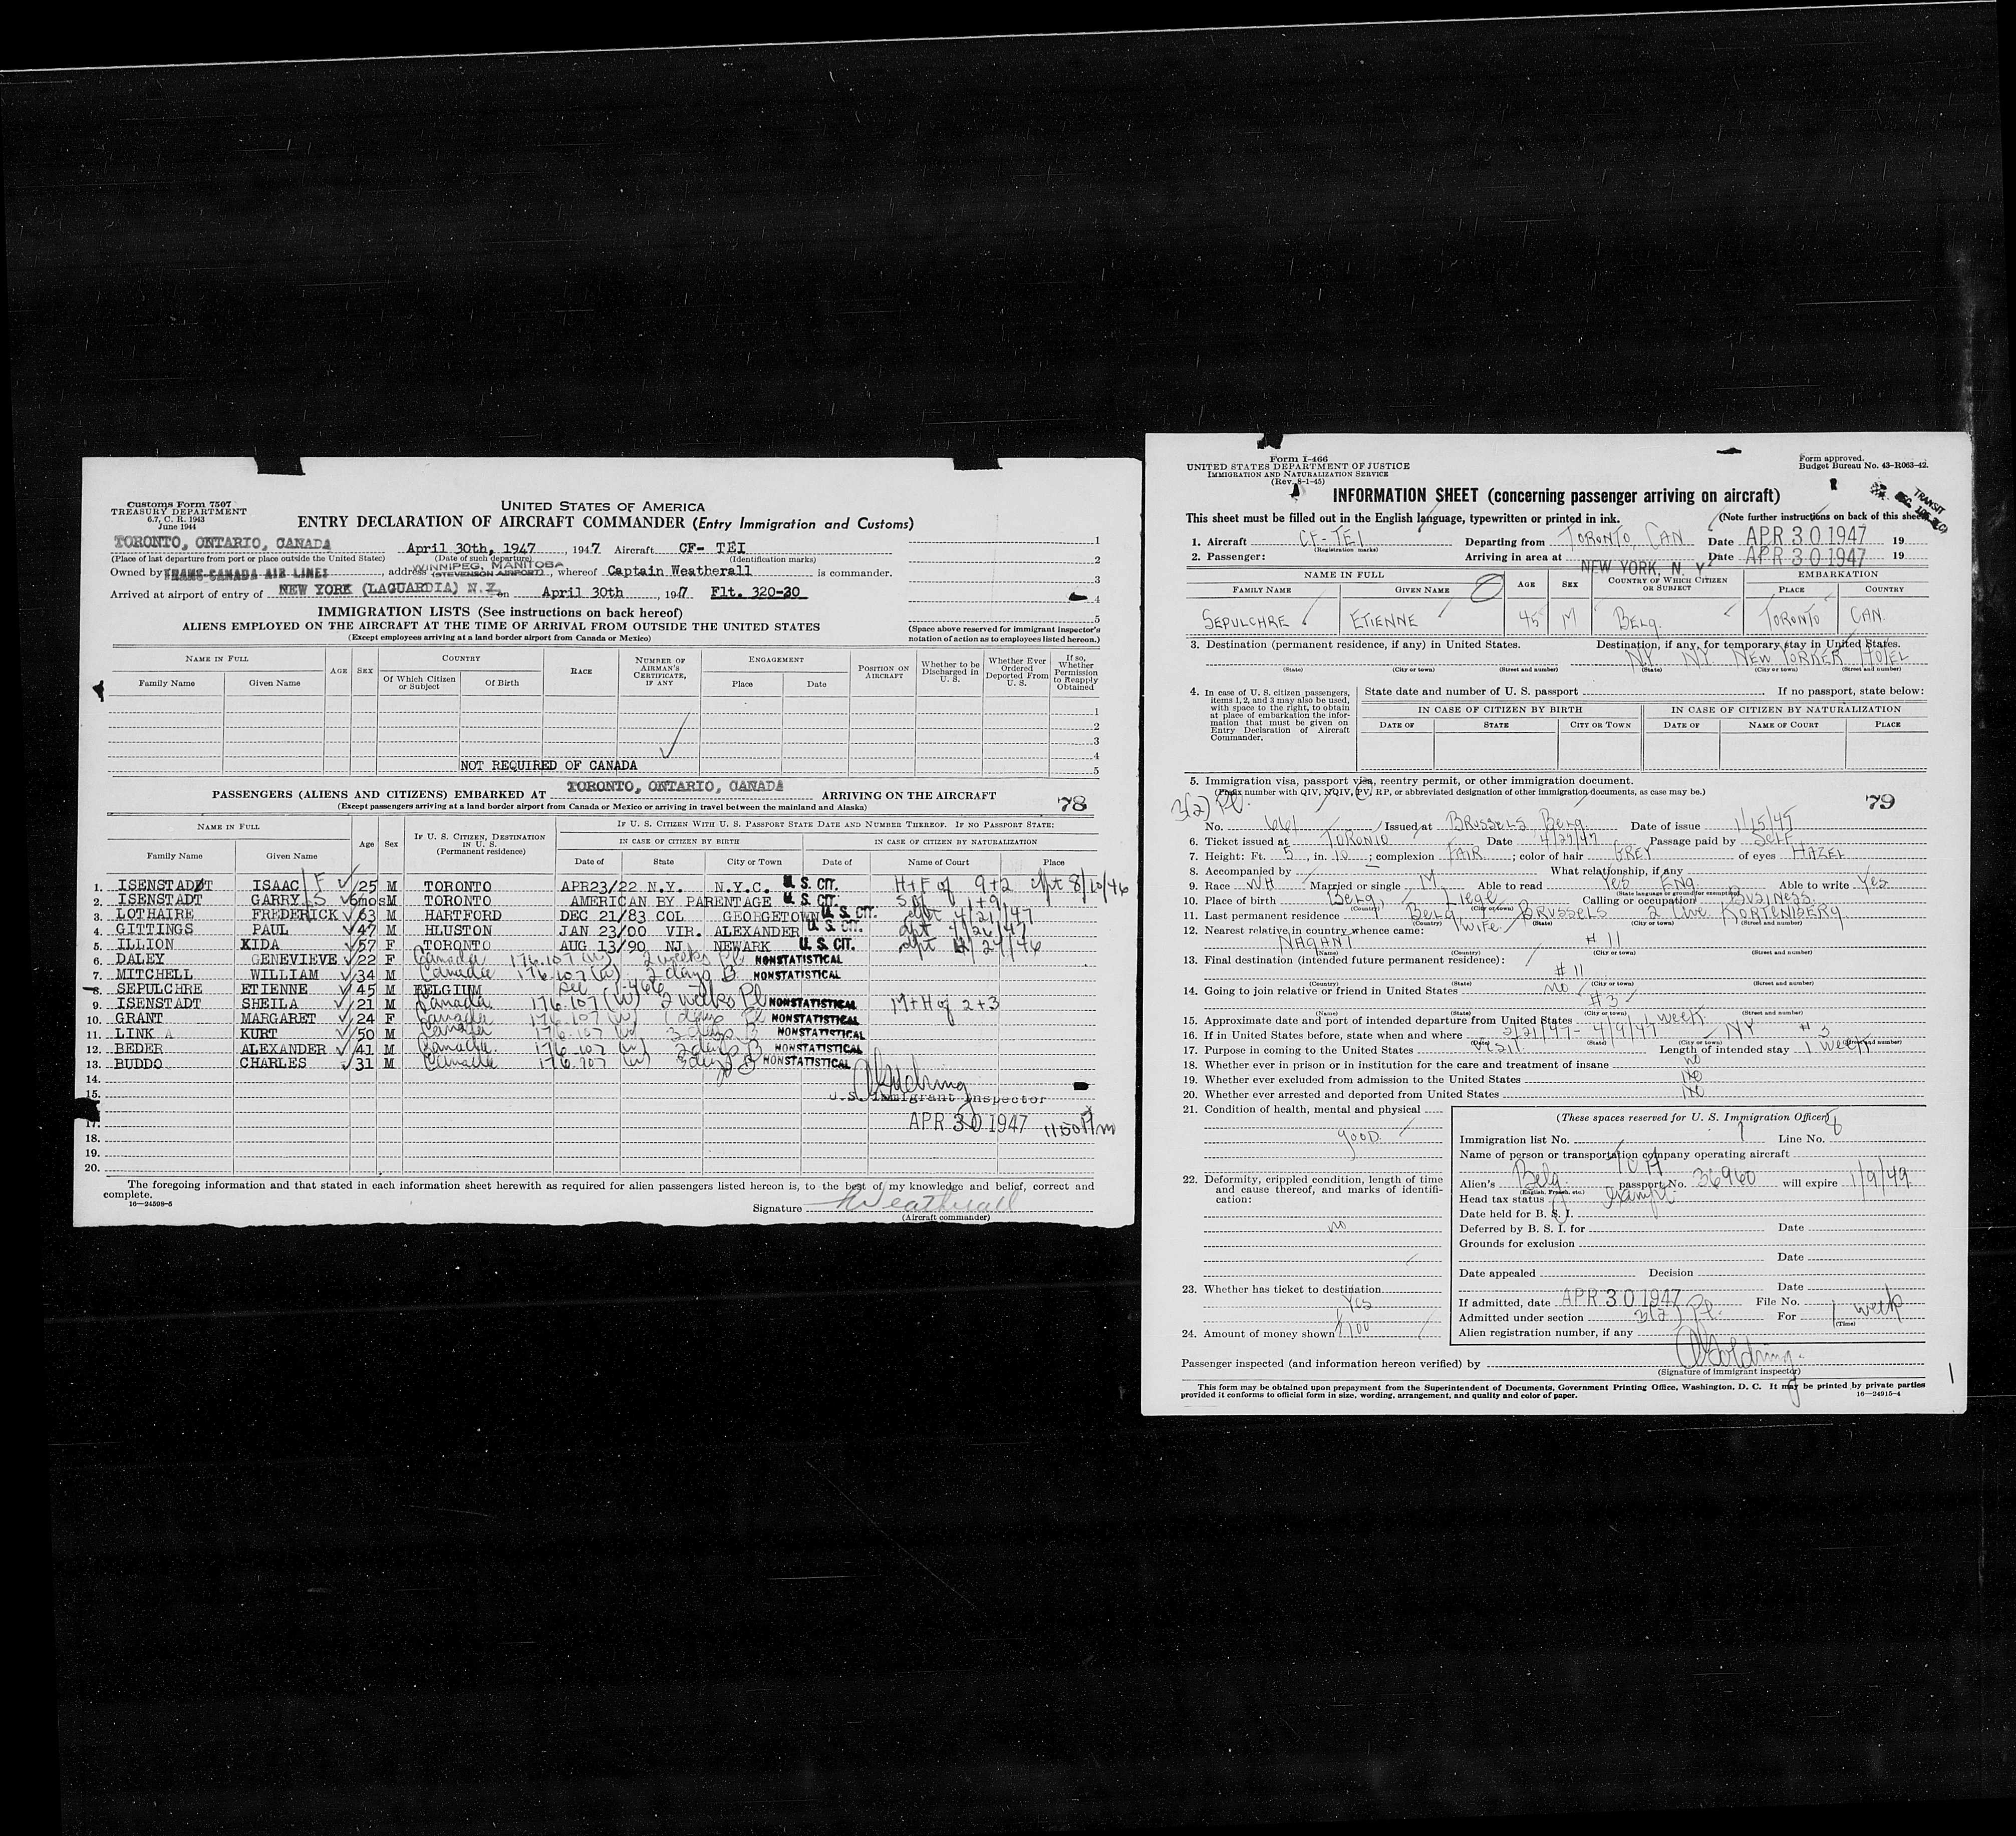 Customs Form 7507
TREASURY DEPARTMENT
6.7, C. R. 1943
June 1944
UNITED STATES OF AMERICA
ENTRY DECLARATION OF AIRCRAFT COMMANDER (Entry Immigration and Customs)
TORONTO, ONTARIO, CANADA April 30th, 1947, 1947 Aircraft CF- TEI 1
(Place of last departure from port or place outside the United State) (Date of such departure) (Identification marks) 2
Owned by TRANS-CANADA AIR LINES address WINNIPEG, MANITOBA (STEVENSON AIRPORT), whereof Captain Weatherall is commander. 3
Arrived at airport of entry of NEW YORK (LAGUARDIA) N.Y. on April 30th, 1947 Flt. 320-30 4
IMMIGRATION LISTS (See instructions on back hereof) 5
ALIENS EMPLOYED ON THE AIRCRAFT AT THE TIME OF ARRIVAL FROM OUTSIDE THE UNITED STATES
(Except employees arriving at a land border airport from Canada or Mexico)
(Space above reserved for immigrant inspector's notation of action as to employees listed hereon.)
NAME IN FULL AGE SEX COUNTRY RACE NUMBER OF AIRMAN'S CERTIFICATE, IF ANY ENGAGEMENT POSITION ON AIRCRAFT Whether to be Discharged in U. S. Whether Ever Ordered Deported From U. S. If so, Whether Permission to Reapply Obtained
Family Name Given Name Of Which Citizen or Subject Of Birth Place Date
1
2
3
4
NOT REQUIRED OF CANADA 5
PASSENGERS (ALIENS AND CITIZENS) EMBARKED AT TORONTO, ONTARIO, CANADA ARRIVING ON THE AIRCRAFT
(Except passengers arriving at a land border airport from Canada or Mexico or arriving in travel between the mainland and Alaska) 78
NAME IN FULL Age Sex IF U. S. CITIZEN, DESTINATION IN U. S. (Permanent residence) IF U. S. CITIZEN WITH U. S. PASSPORT STATE DATE AND NUMBER THEREOF. IF NO PASSPORT STATE:
IN CASE OF CITIZEN BY BIRTH IN CASE OF CITIZEN BY NATURALIZATION
Family Name Given Name Date of State City or Town Date of Name of Court Place
1. ISENSTADT ISAAC F 25 M TORONTO APR23/22 N.Y. N.Y.C. U. S. CIT. H+F of 9+2 dpt 8/10/46
2. ISENSTADT GARRY S 6mos M TORONTO AMERICAN BY PARENTAGE U. S. CIT. S of 1+9
3. LOTHAIRE FREDERICK 63 M HARTFORD DEC 21/83 COL GEORGETOWN U. S. CIT. dpt 4/21/47
4. GITTINGS PAUL 47 M HLUSTON JAN 23/00 VIR. ALEXANDER U. S. CIT. dpt 4/26/47
5. ILLION KIDA 57 F TORONTO AUG 13/90 NJ NEWARK U. S. CIT. dpt 12/27/46
6. DALEY GENEVIEVE 22 F Canada 176.107 (w) 2 weeks Pl NONSTATISTICAL
7. MITCHELL WILLIAM 34 M Canada 176.107 (w) 2 days B NONSTATISTICAL
8. SEPULCHRE ETIENNE 45 M BELGIUM See I-466
9. ISENSTADT SHEILA 21 M Canada 176.107 (w) 2 weeks Pl NONSTATISTICAL M+H of 2+3
10. GRANT MARGARET 24 F Canada 176.107 (w) days Pl NONSTATISTICAL
11. LINK A KURT 50 M Canada 176.107 (w) 3 days B NONSTATISTICAL
12. BEDER ALEXANDER 41 M Canada 176.107 (w) 2 days B NONSTATISTICAL
13. BUDDO CHARLES 31 M Canada 176.107 (w) 3 days B NONSTATISTICAL
14.
15. U.S. Immigrant Inspector
17. APR 30 1947 11:50 Pm
18.
19.
20.
The foregoing information and that stated in each information sheet herewith as required for alien passengers listed hereon is, to the best of my knowledge and belief, correct and
complete.
16—24598-5
Signature Weatherall
(Aircraft commander)
Form I-466
UNITED STATES DEPARTMENT OF JUSTICE
IMMIGRATION AND NATURALIZATION SERVICE
(Rev. 8-1-45)
Form approved.
Budget Bureau No. 43-R063-42.
INFORMATION SHEET (concerning passenger arriving on aircraft)
TRANSIT
This sheet must be filled out in the English language, typewritten or printed in ink. (Note further instructions on back of this sheet)
1. Aircraft CF-TEI Departing from TORONTO, CAN Date APR 30 1947 19
(Registration marks)
2. Passenger: Arriving in area at NEW YORK, N. Y. Date APR 30 1947 19
NAME IN FULL AGE SEX COUNTRY OF WHICH CITIZEN OR SUBJECT EMBARKATION
FAMILY NAME GIVEN NAME PLACE COUNTRY
SEPULCHRE ETIENNE 45 M Belg. TORONTO CAN.
3. Destination (permanent residence, if any) in United States. Destination, if any, for temporary stay in United States.
NY NY NEW YORKER HOTEL
(State) (City or town) (Street and number) (State) (City or town) (Street and number)
4. In case of U. S. citizen passengers, items 1, 2, and 3 may also be used, with space to the right, to obtain at place of embarkation the information that must be given on Entry Declaration of Aircraft Commander.
State date and number of U. S. passport If no passport, state below:
IN CASE OF CITIZEN BY BIRTH IN CASE OF CITIZEN BY NATURALIZATION
DATE OF STATE CITY OR TOWN DATE OF NAME OF COURT PLACE
5. Immigration visa, passport visa, reentry permit, or other immigration document.
(Prefix number with QIV, NQIV, PV, RP, or abbreviated designation of other immigration documents, as case may be.)
3(2) Pl. 79
No. 661 Issued at BRUSSELS, Belg. Date of issue 1/15/47
6. Ticket issued at TORONTO Date 4/29/47 Passage paid by SELF
7. Height: Ft. 5, in. 10; complexion FAIR; color of hair GREY of eyes HAZEL
8. Accompanied by What relationship, if any
9. Race WH Married or single M Able to read Yes ENG. Able to write Yes
(State language or ground for exemption)
10. Place of birth Belg. Liege Calling or occupation BUSINESS.
(Country) (City or town)
11. Last permanent residence Belg. BRUSSELS 2 Ave KORTENBERG
(Country) (State) (City or town) (Street and number)
12. Nearest relative in country whence came: Wife
NAGANT # 11
(Name) (City or town) (Street and number)
13. Final destination (intended future permanent residence):
# 11
(Country) (City or town) (Street and number)
14. Going to join relative or friend in United States no
#3
(Name) (State) (City or town) (Street and number)
15. Approximate date and port of intended departure from United States 1 week
16. If in United States before, state when and where 3/21/47 - 4/9/47 NY # 3
(Date) (State) (City or town) (Street and number)
17. Purpose in coming to the United States Visit Length of intended stay 1 week
18. Whether ever in prison or in institution for the care and treatment of insane no
19. Whether ever excluded from admission to the United States No
20. Whether ever arrested and deported from United States No
21. Condition of health, mental and physical
good.
22. Deformity, crippled condition, length of time and cause thereof, and marks of identification:
no
23. Whether has ticket to destination
Yes
24. Amount of money shown $100
(These spaces reserved for U. S. Immigration Officer)
Immigration list No. 1 Line No. 8
Name of person or transportation company operating aircraft TCA
Alien's Belg. passport No. 36960 will expire 1/9/49
(English, French, etc.)
Head tax status Exempt.
Date held for B. S. I.
Deferred by B. S. I. for Date
Grounds for exclusion
Date
Date appealed Decision
Date
If admitted, date APR 30 1947 File No.
Admitted under section 3(2) Pl. For 1 week
(Time)
Alien registration number, if any
Passenger inspected (and information hereon verified) by
(Signature of immigrant inspector)
This form may be obtained upon prepayment from the Superintendent of Documents, Government Printing Office, Washington, D. C. It may be printed by private parties
provided it conforms to official form in size, wording, arrangement, and quality and color of paper. 16—24915-4